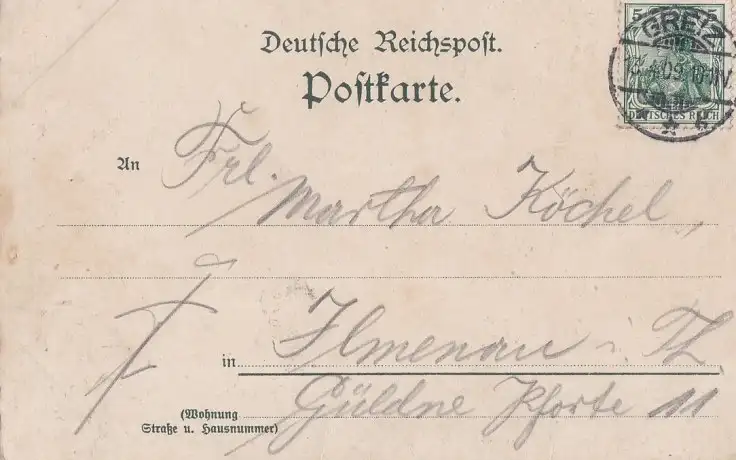 Deutsche Reichspost.
Postkarte.
5
GREIZ
09
DEUTSCHES REICH
An Frl. Martha Köchel,
in Ilmenau i. Th
Güldne Pforte 11
(Wohnung
Straße u. Hausnummer)